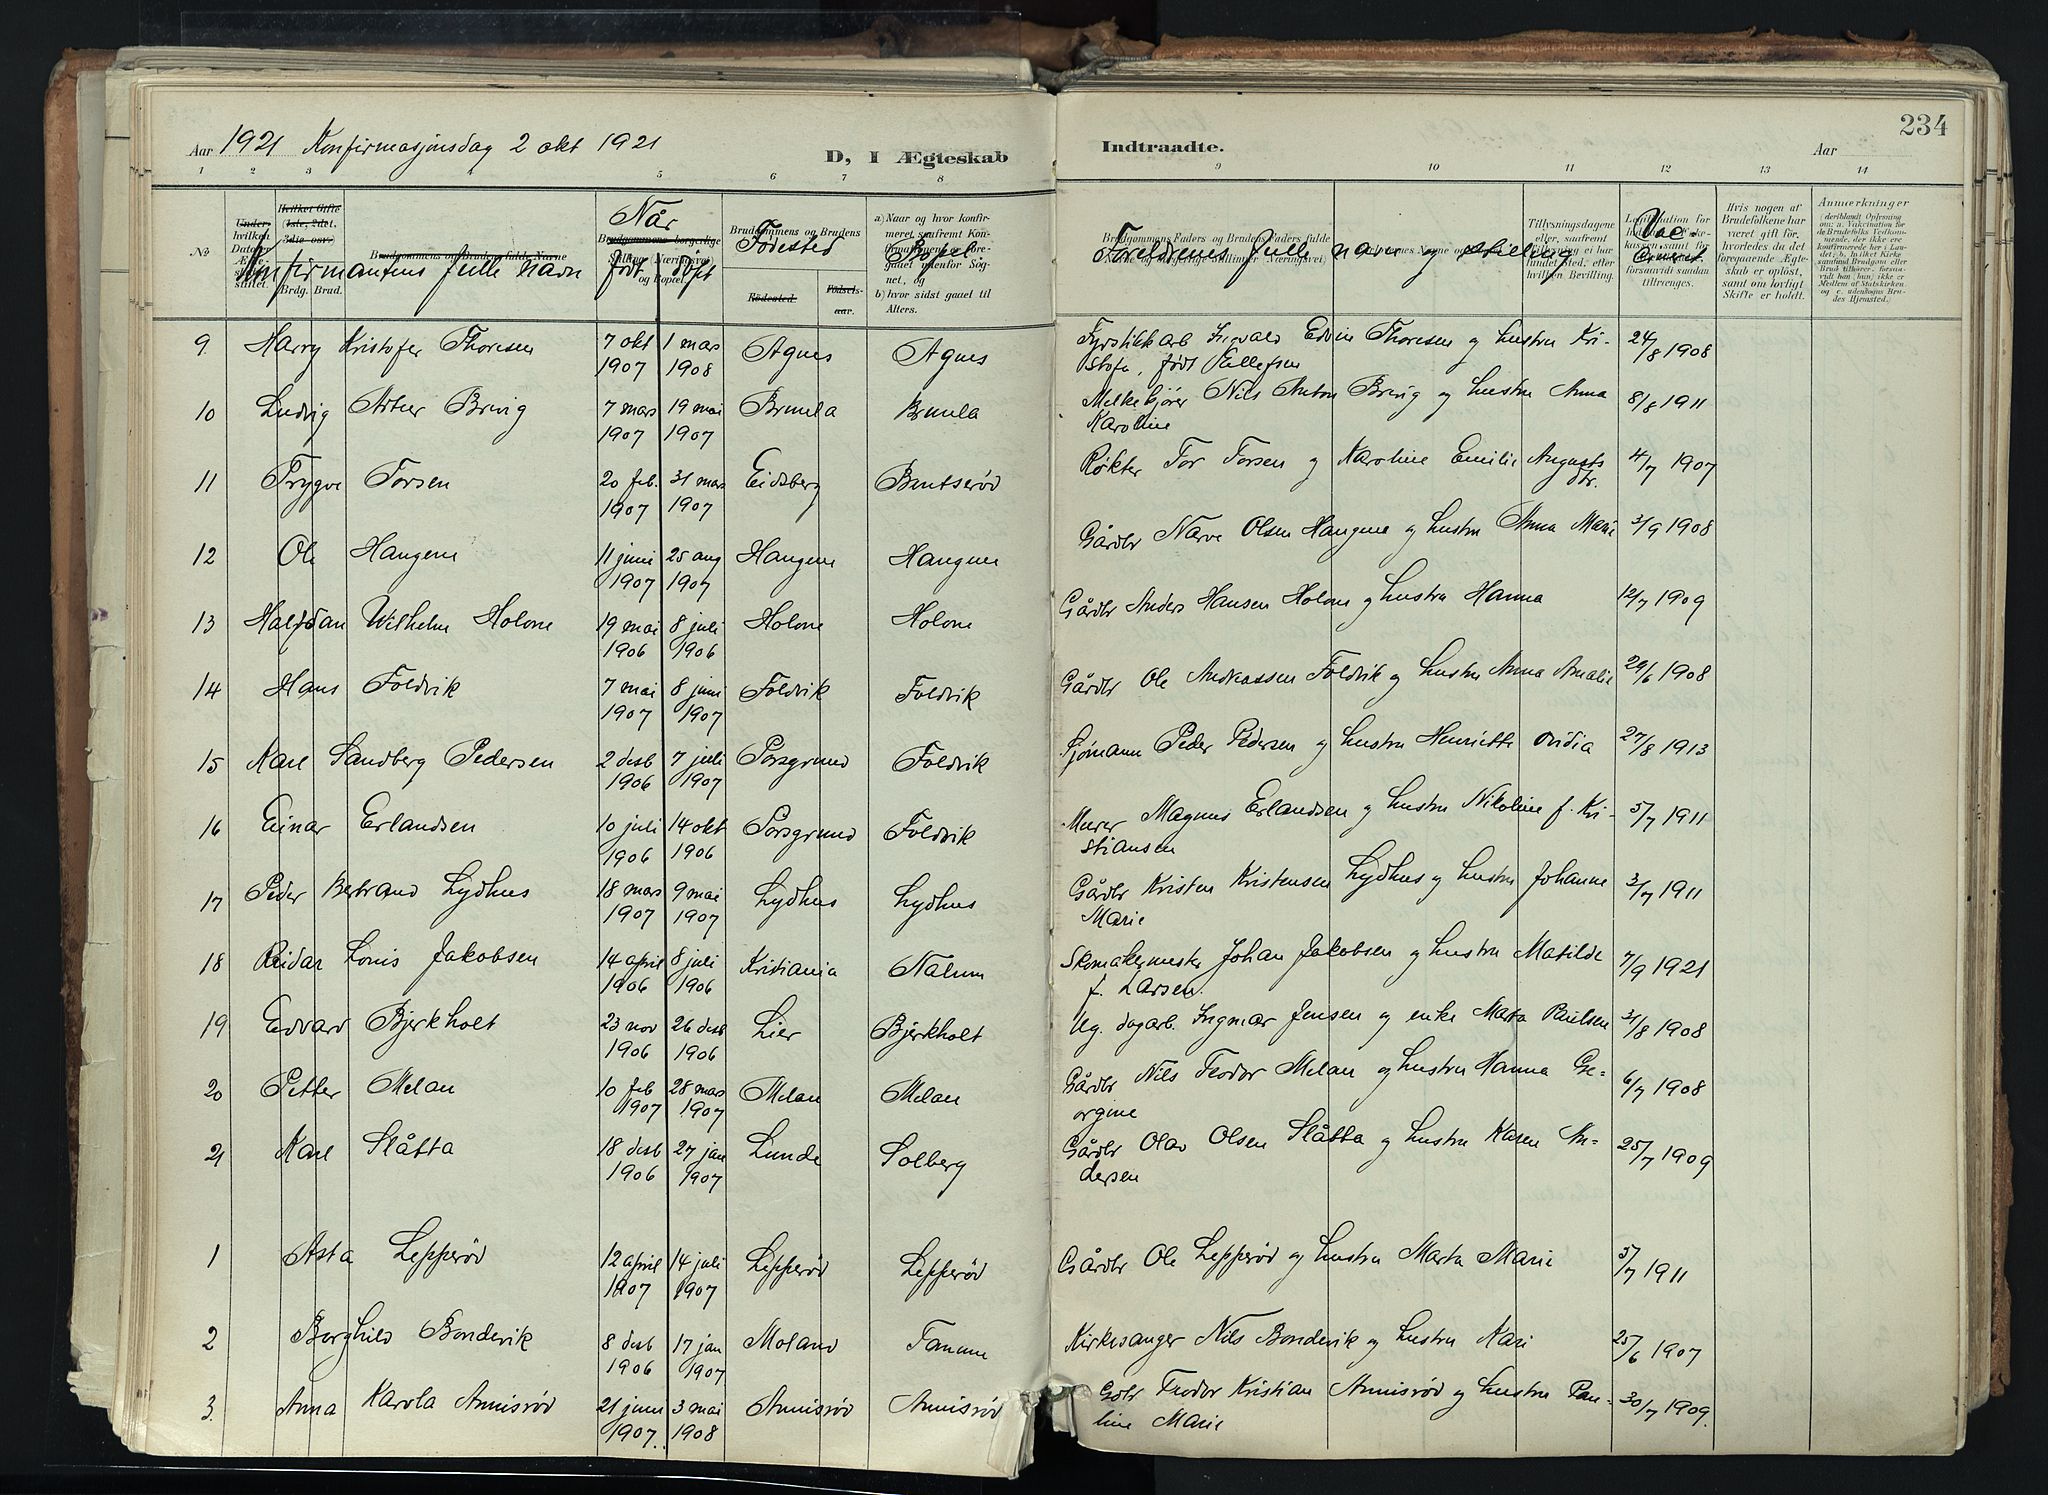 Aar 1921 Konfirmasjonsdag 2 okt 1921
D, I Ægteskab
Indtraadte.
Aar
234
1 2 3 4 5 6 7 8 9 10 11 12 13 14
No.
Under hvilken Datum Ægteskabet stiftet.
Hvilket Gifte (1ste, 2det, 3die osv.)
Brdg. Brud.
Brudgommens og Brudens fulde Navne
Konfirmantens fulle navn
Når
født døpt
Brudgommens og Brudens
Fødested
Fødested.
Fødsels-aar.
Bopel
a) Naar og hvor konfirmeret
b) hvor sidst gaaet til Alters.
Foreldrenes fulle navn og stilling
Brudgommens Faders og Brudens Faders fulde
Tillysningsdagene eller, saafremt Tillysning ei har fundet Sted, efter hvilken Bevilling.
Vac-
Hvis nogen af Brudefolkene har været gift før, hvorledes da det foregaaende Ægteskab er opløst, samt om lovligt Skifte er holdt.
Anmerkninger
9 Harry Kristofer Thoresen 7 okt 1907 1 mars 1908 Agnes Agnes Fyrstikkarb Ingvald Edvin Thoresen og hustru Kristofa, født Tellefsen 24/8 1908
10 Ludvig Artur Brevig 7 mars 1907 19 mai 1907 Brunla Brunla Melkekjører Nils Anton Brevig og hustru Anna Karoline 8/8 1911
11 Trygve Torsen 20 feb. 1907 31 mars 1907 Eidsberg Bentserød Røkter Tor Torsen og Karoline Emilie Augustsdtr. 4/7 1907
12 Ole Haugene 11 juni 1907 25 aug 1907 Haugene Haugene Gårdbr Narve Olsen Haugene og hustru Anna Marie 3/9 1908
13 Halfdan Wilhelm Holone 19 mai 1906 8 juli 1906 Holone Holone Gårdbr Anders Hansen Holone og hustru Hanna 12/7 1909
14 Hans Foldvik 7 mai 1907 8 juni 1907 Foldvik Foldvik Gårdbr Ole Andreassen Foldvik og hustru Anna Amalie 29/6 1908
15 Karl Sandberg Pedersen 2 desb 1906 7 juli 1907 Porsgrund Foldvik Sjømann Peder Pedersen og hustru Henriette Ovidia 27/8 1913
16 Einar Erlandsen 10 juli 1906 14 okt 1906 Porsgrund Foldvik Murer Magnus Erlandsen og hustru Nikoline f. Kristiansen 5/7 1911
17 Peder Bertrand Lydhus 18 mars 1907 9 mai 1907 Lydhus Lydhus Gårdbr Kristen Kristensen Lydhus og hustru Johanne Marie 3/7 1911
18 Reidar Louis Jakobsen 14 april 1906 8 juli 1906 Kristiania Nalum Skomakermester Johan Jakobsen og hustru Matilde f. Larsen. 7/9 1921
19 Edvard Bjerkholt 23 nov 1906 26 desb 1906 Lier Bjerkholt Ug. dagarb. Ingmar Jensen og enke Marta Paulsen 31/8 1908
20 Petter Melau 10 feb 1907 28 mars 1907 Melau Melau Gårdbr Nils Teodor Melau og hustru Hanna Georgine 6/7 1908
21 Karl Slåtta 18 desb 1906 27 jan 1907 Lunde Solberg Gårdbr Olav Olsen Slåtta og hustru Karen Andersen 25/7 1909
1 Asta Lepperød 12 april 1907 14 juli 1907 Lepperød Lepperød Gårdbr Ole Lepperød og hustru Marta Marie 5/7 1911
2 Borghild Bondevik 8 desb 1906 17 jan 1907 Moland Tanum Kirkesanger Nils Bondevik og hustru Kari 25/6 1907
3. Anna Karola Annisrød 21 juni 1907.. 3 mai 1908 Annisrød Annisrød Gdbr Teodor Kristian Annisrød og hustru Pauline Marie 30/7 1909.